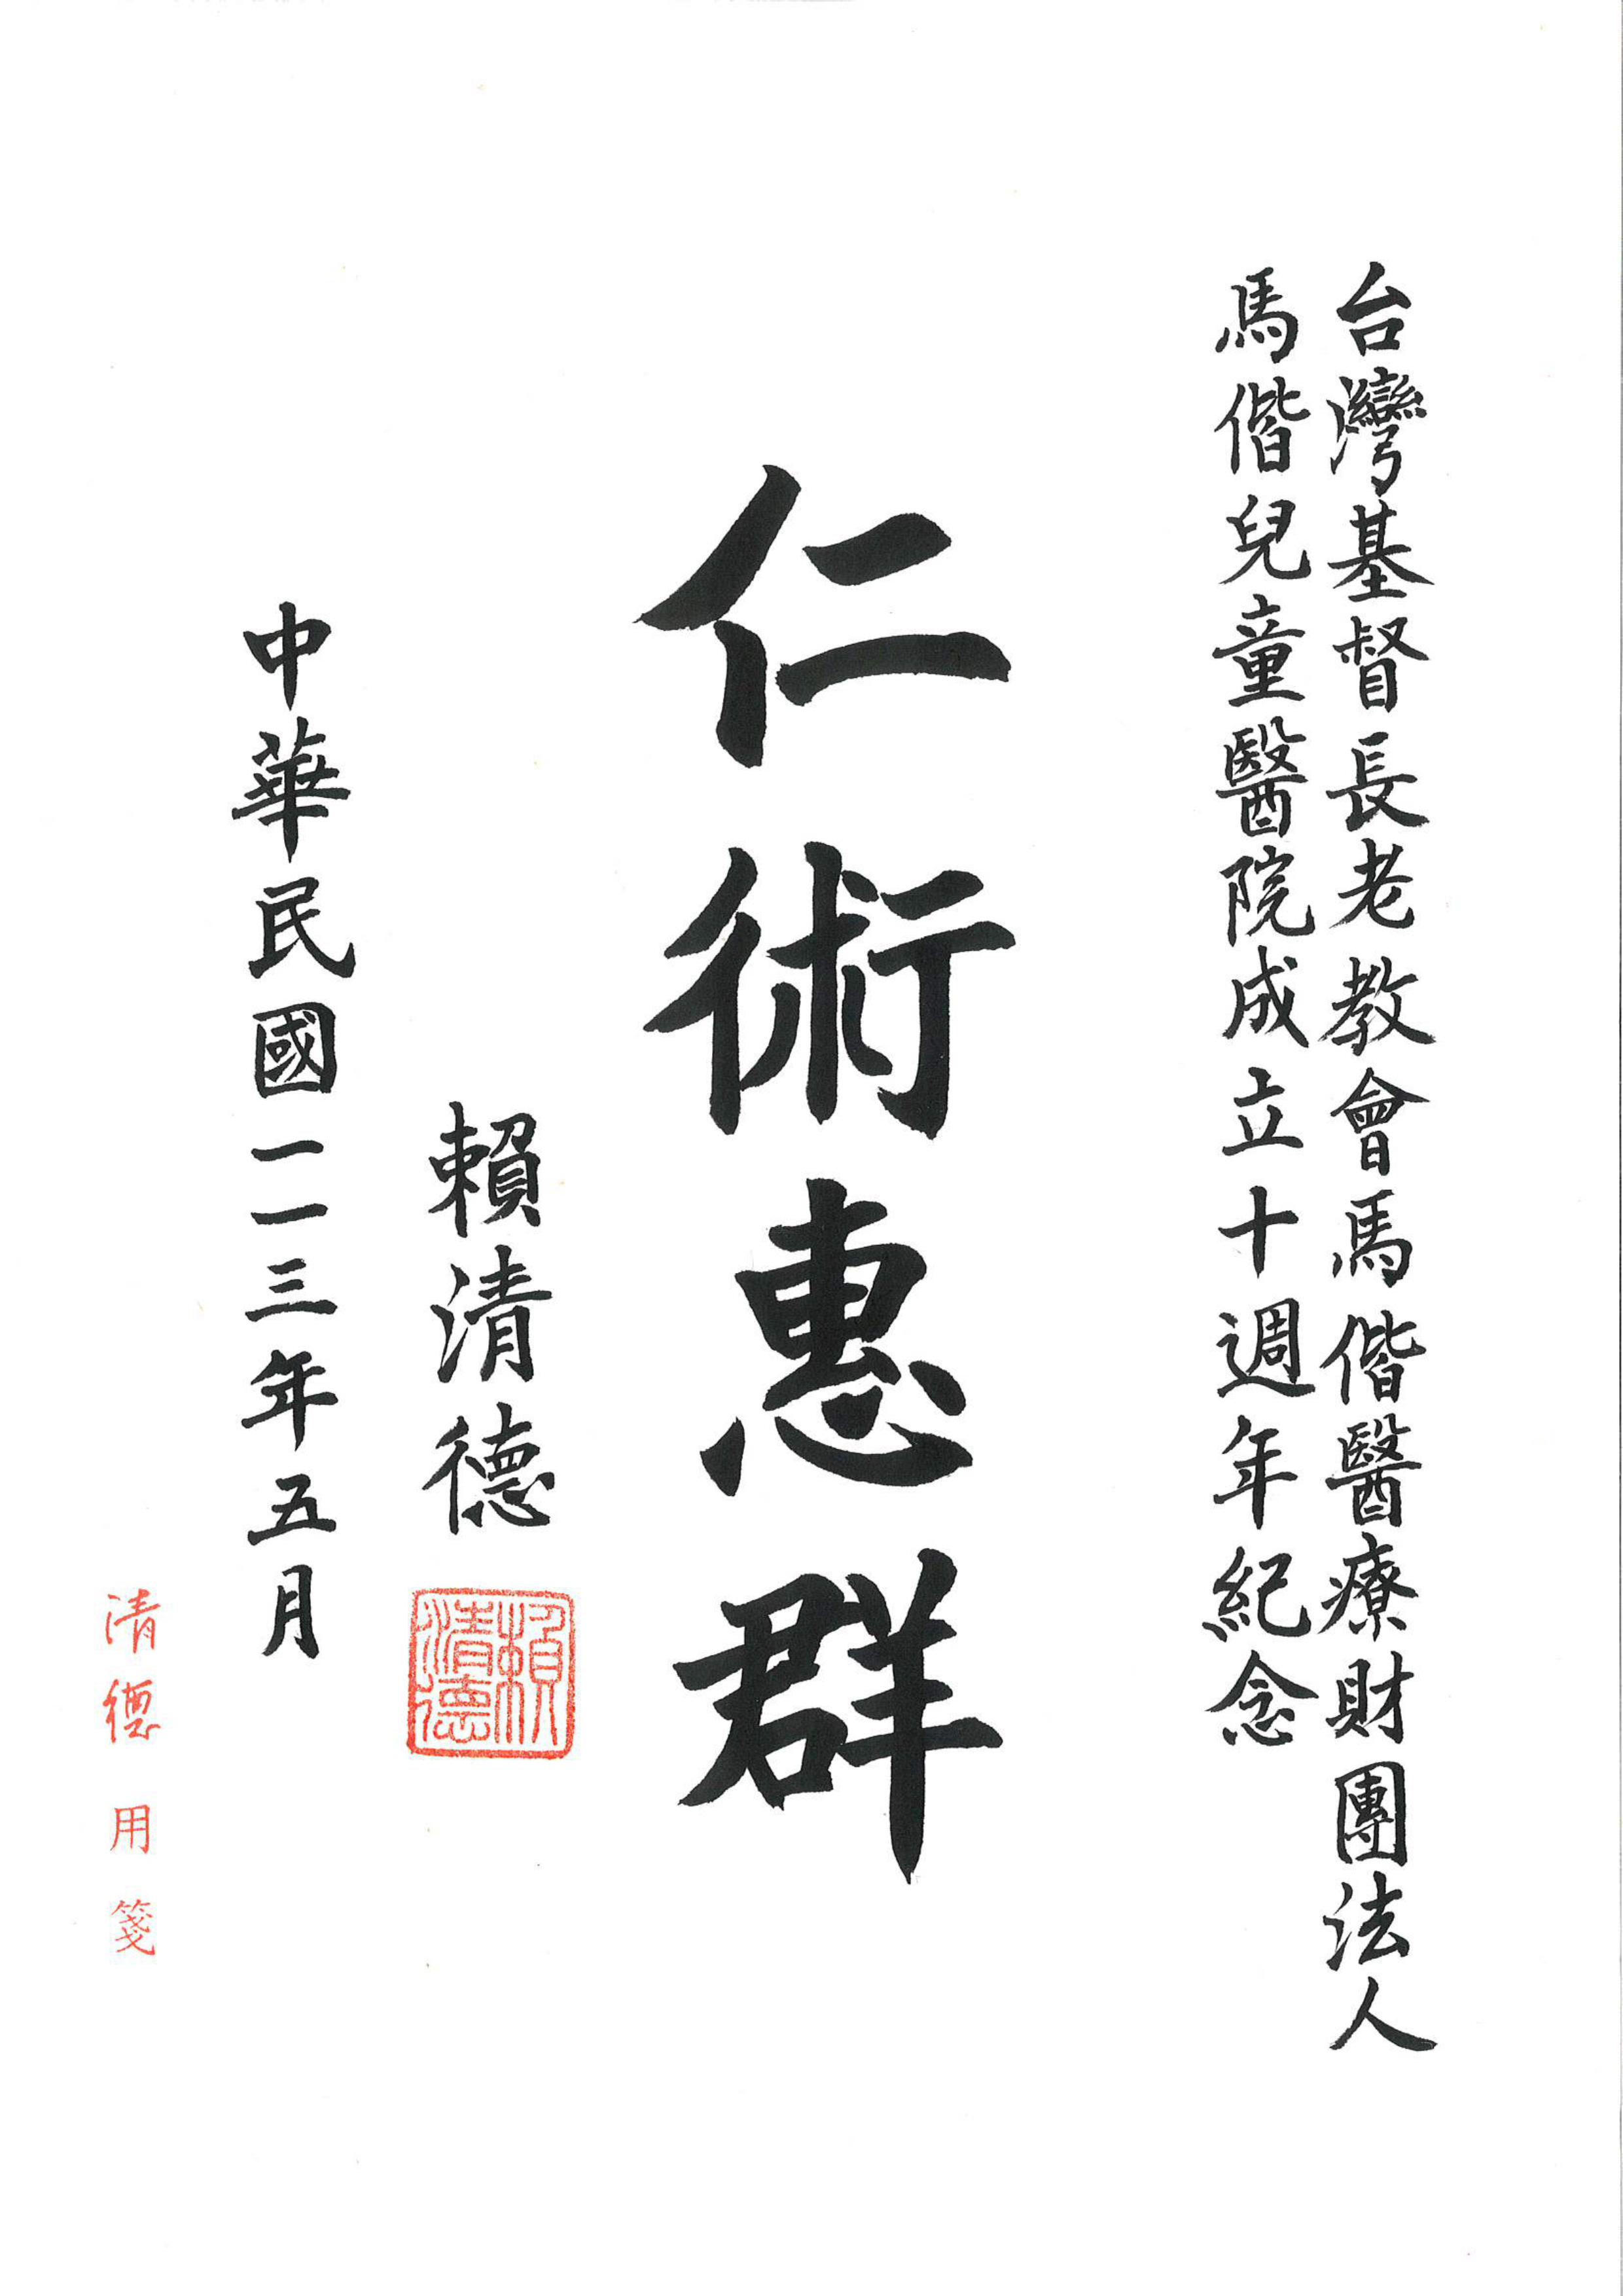 台灣基督長老教會馬偕醫療財團法人
馬偕兒童醫院成立十週年紀念
仁術惠群
賴清德
賴清德
中華民國一一三年五月
清德用箋